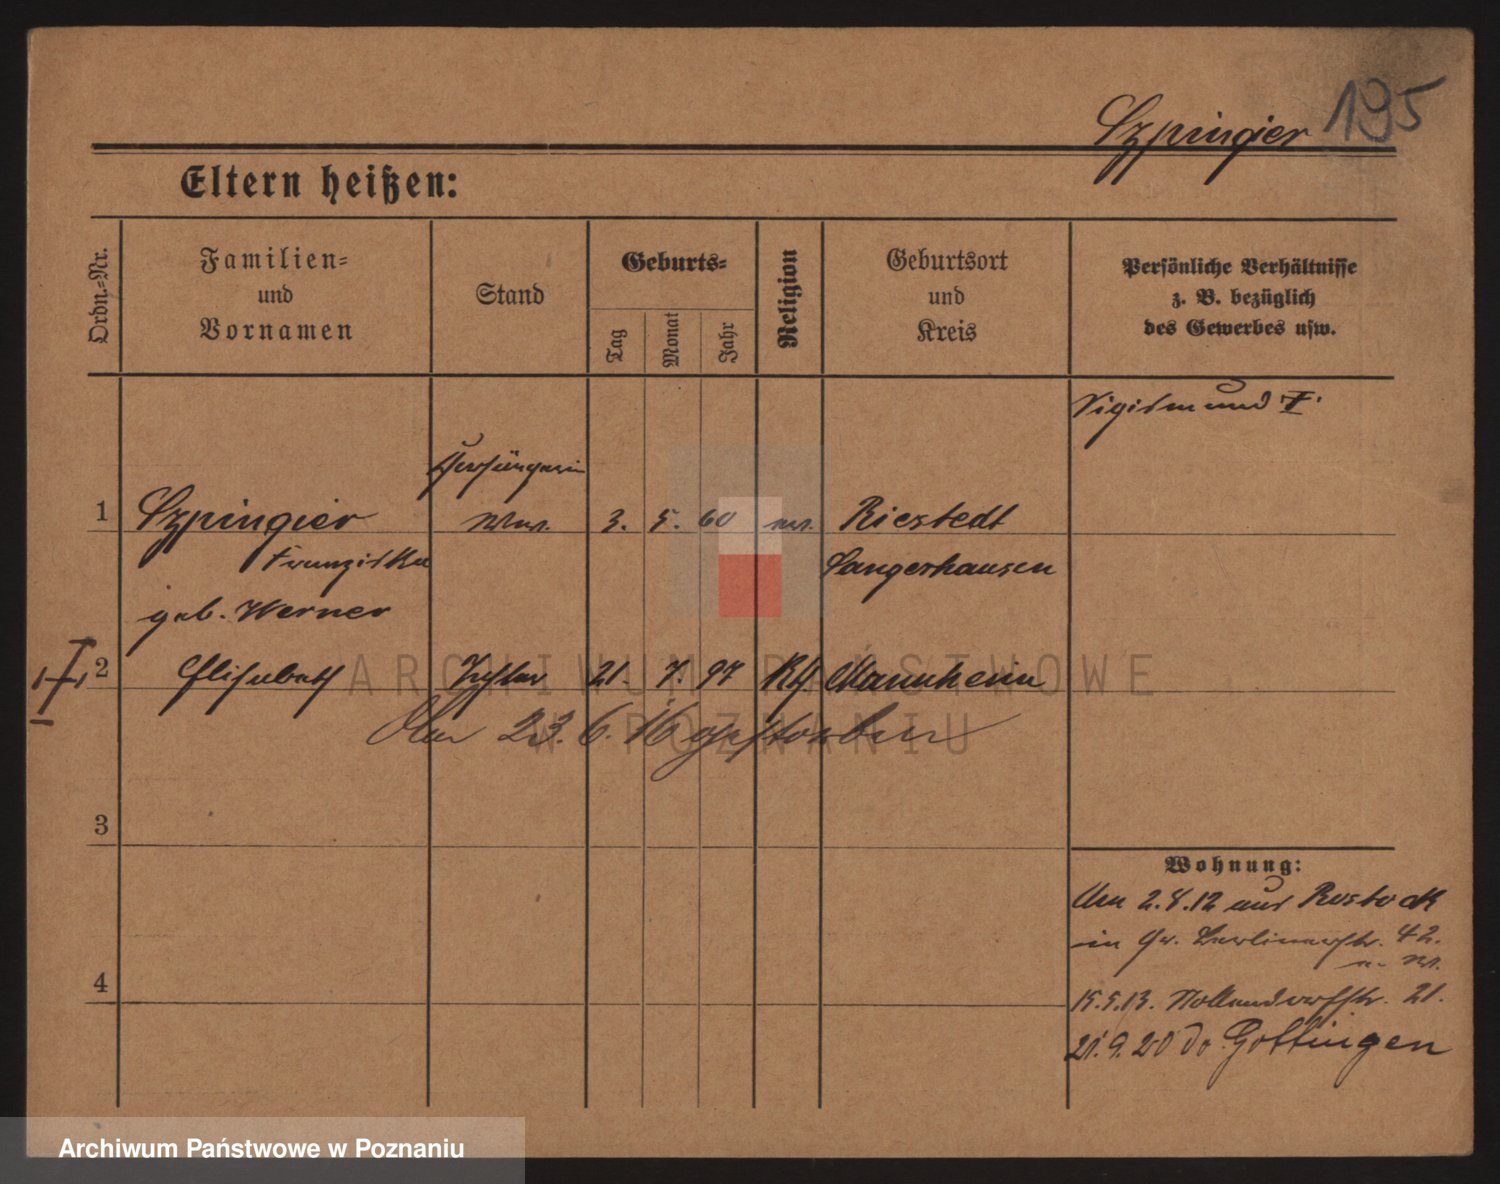 195
Szpingier
Eltern heißen:
Ordn.-Nr.
Familien-
und
Vornamen
Stand
Geburts-
Tag
Monat
Jahr
Religion
Geburtsort
und
Kreis
Persönliche Verhältnisse
z. B. bezüglich
des Gewerbes usw.
Sigismund †.
1 Szpingier Ww. 3. 5. 60 Riestedt
Franziska Sangerhausen
geb. Werner
2 Elisabeth Tochter 21. 7. 97 Kth Mannheim
Am 23.6.16 gestorben
3
4
Wohnung:
Am 2.4.12 aus Rostock
in Gr. Berlinerstr. 42.
15.5.13. Nollendorfstr. 21.
21.9.20 do Göttingen
ARCHIWUM PAŃSTWOWE
W POZNANIU
Archiwum Państwowe w Poznaniu